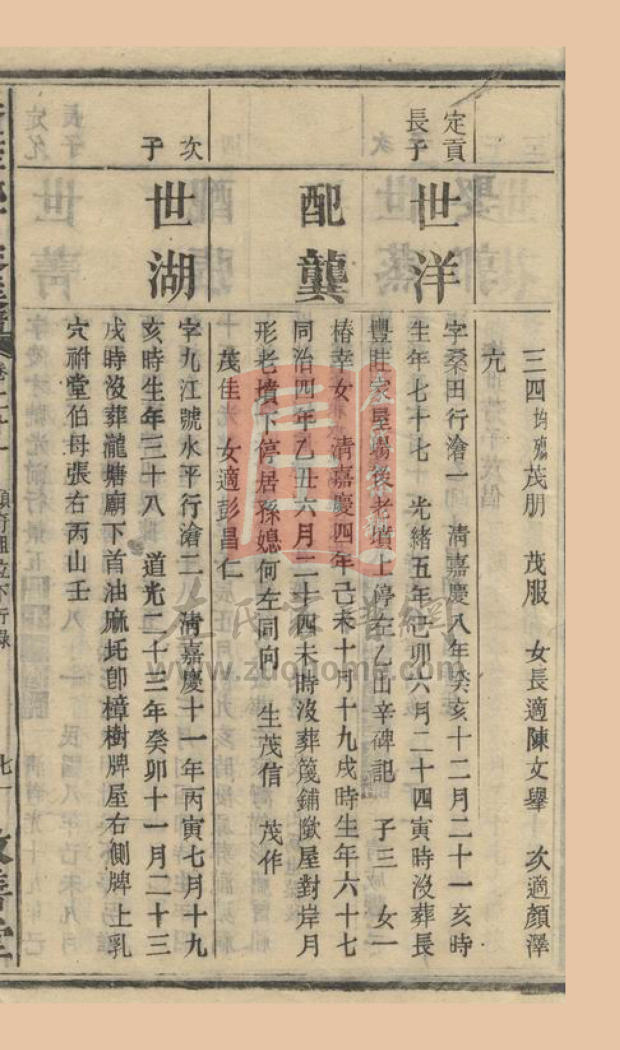 三四均殤茂朋　茂服　女長適陳文舉　次適顏澤
亢
定貢
長子
世洋
字桑田行滄一　清嘉慶八年癸亥十二月二十一亥時
生年七十七　光緒五年己卯六月二十四寅時沒葬長
豐莊家屋場後老墳上停左乙山辛碑記　子三　女一
配龔
椿幸女　清嘉慶四年己未十月十九戌時生年六十七
同治四年乙丑六月二十四未時沒葬篾鋪歘屋對岸月
形老墳下停居孫媳何左同向　生茂信　茂作
茂佳　女適彭昌仁
次
子
世湖
字九江號水平行滄二　清嘉慶十一年丙寅七月十九
亥時生年三十八　道光二十三年癸卯十一月二十三
戌時沒葬瀧塘廟下首油麻坵卽樟樹牌屋右側牌上乳
穴祔堂伯母張右丙山壬
左氏家譜網
www.zuohome.com